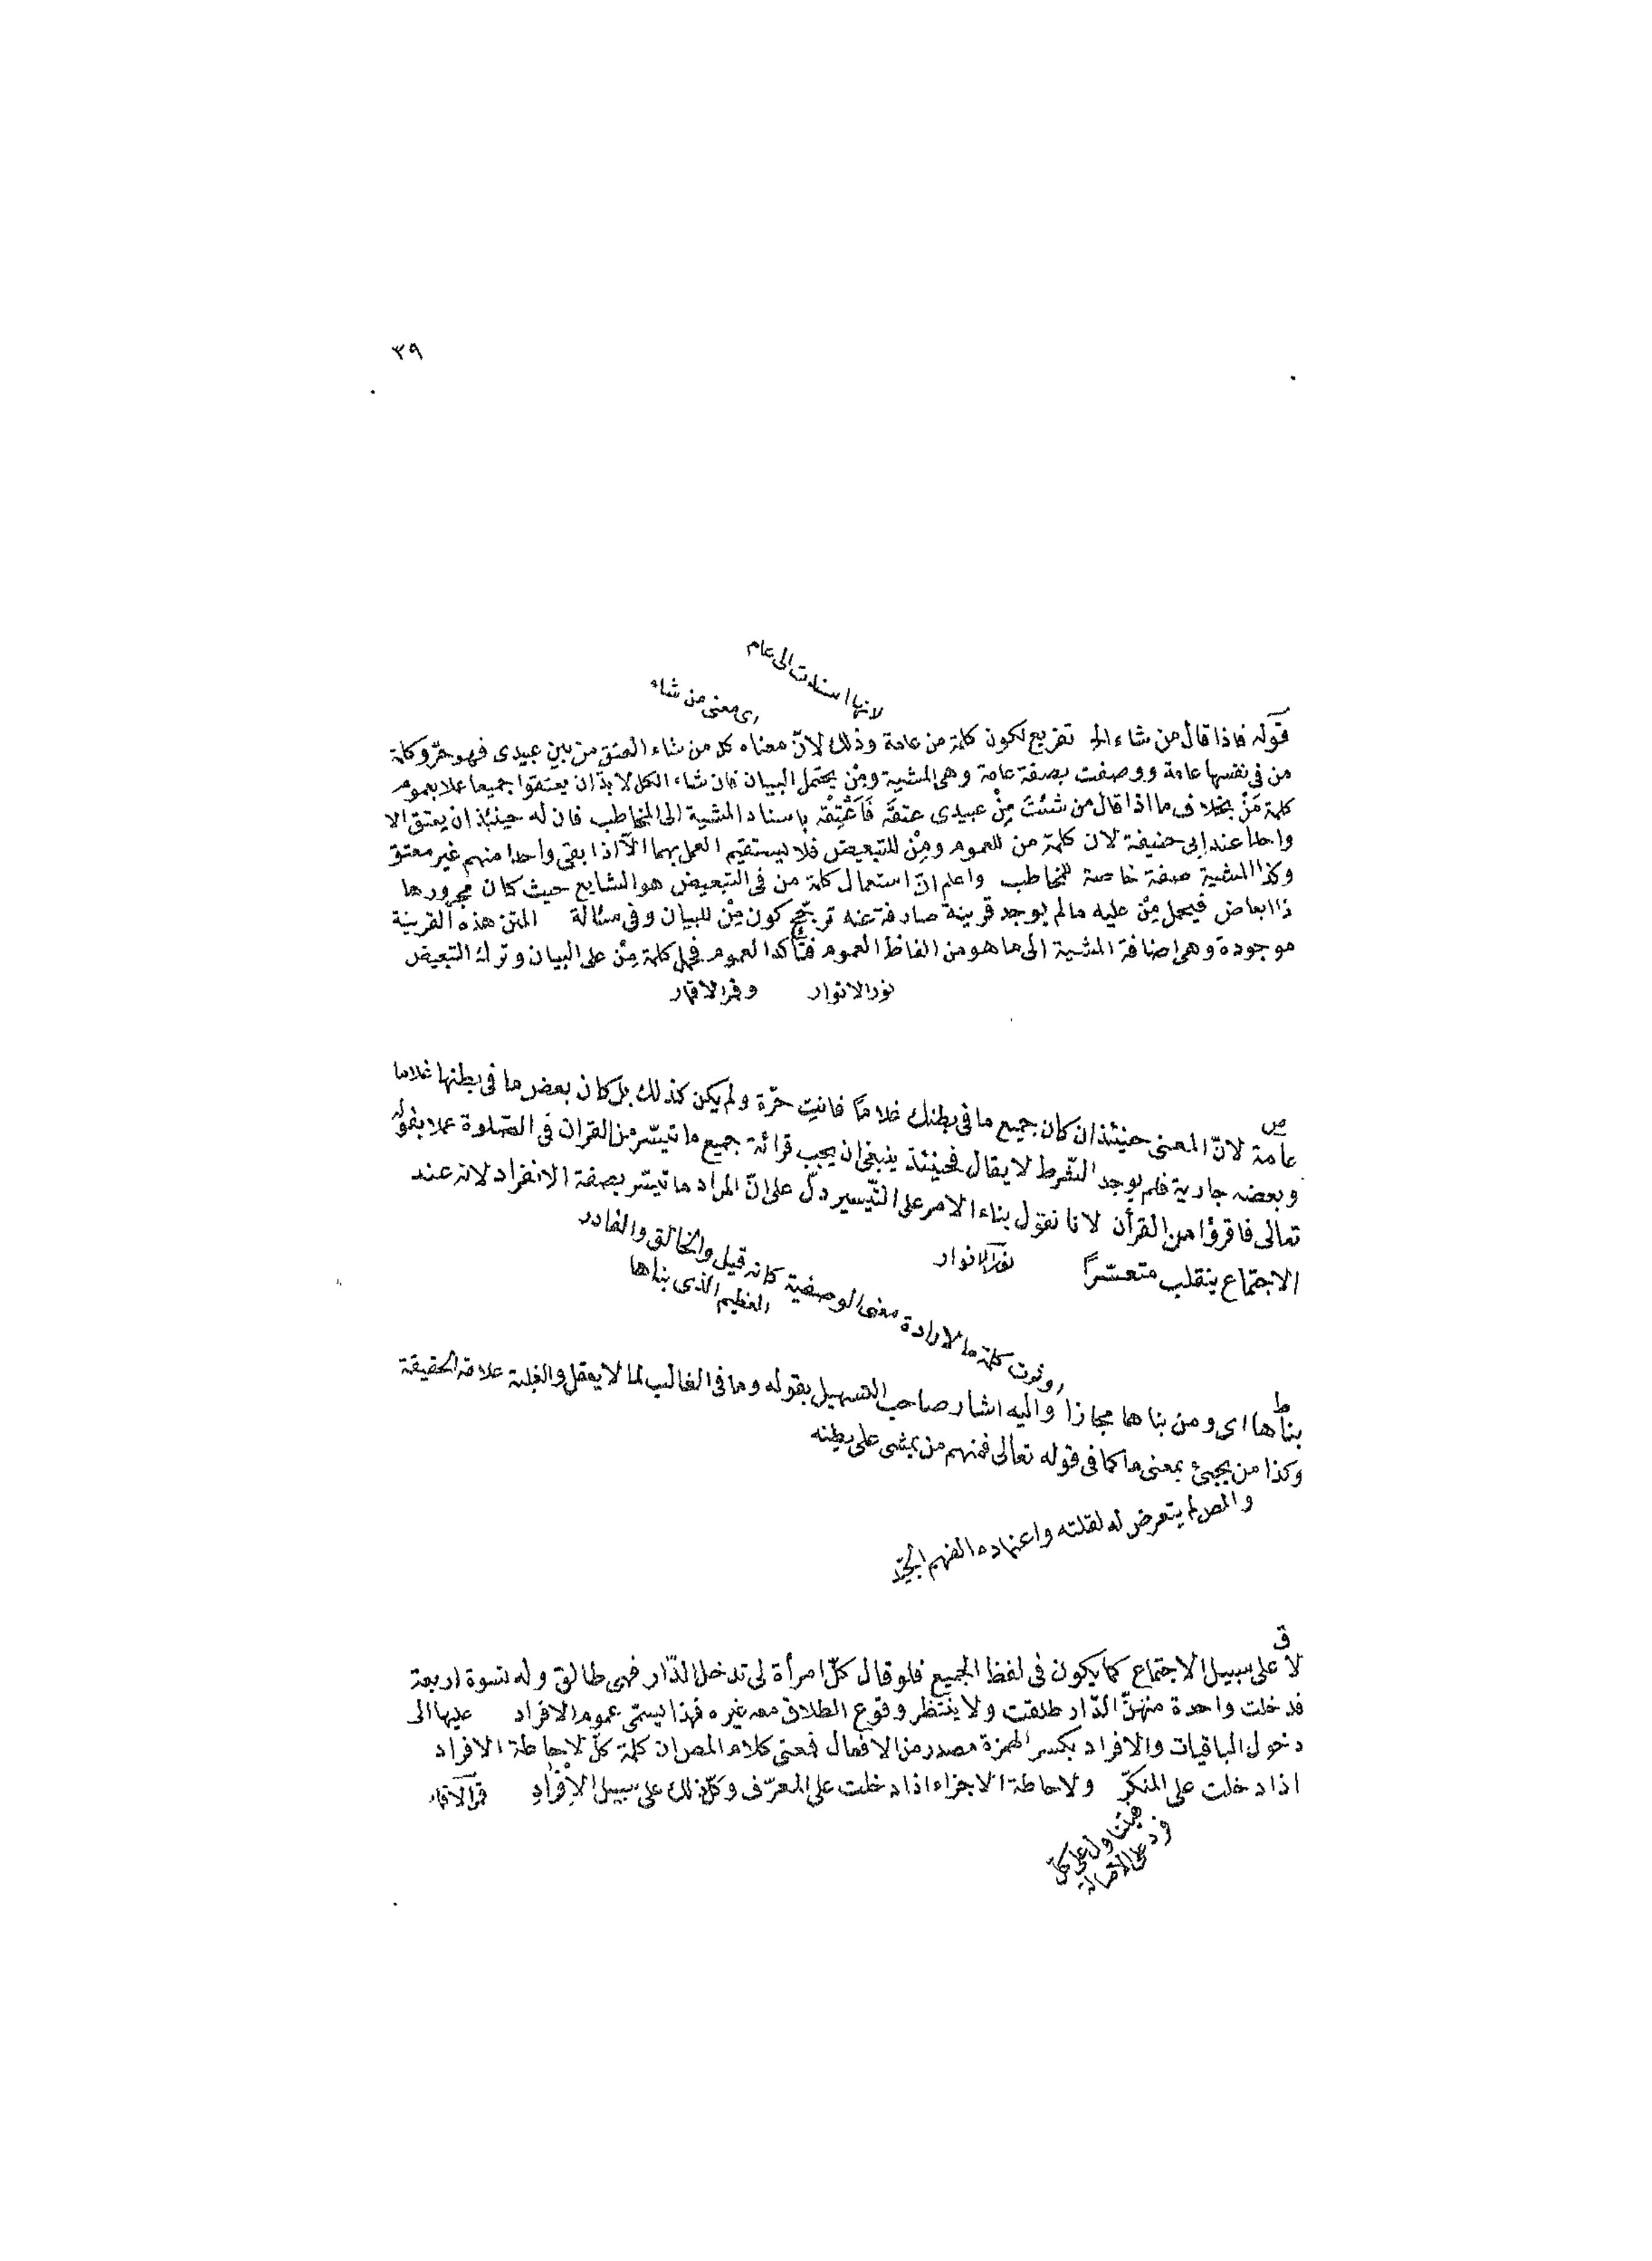 ٣٩
لانها اسندت الى عام
اى معنى من شاء
قوله فاذا قال من شاء الخ تفريع لكون كلمة من عامة وذلك لانّ معناه كل من شاء العتق من بين عبيدى فهو حرّ وكلمة
من فى نفسها عامة ووصفت بصفة عامة وهى المشية ومِنْ يحتمل البيان فان شاء الكل لا بدّ ان يعتقوا جميعا عملا بعموم
كلمة مَنْ بخلاف ما اذا قال من شئتَ مِنْ عبيدى عتقَه فَاَعْتِقْه باسناد المشية الى المخاطب فان له حينئذ ان يعتق الا
واحدا عند ابى حنيفة لان كلمة من للعموم ومِنْ للتبعيض فلا يستقيم العمل بهما الّا اذا بقى واحدا منهم غير معتق
وكذا المشية صفة خاصة للمخاطب واعلم انّ استعمال كلمة من فى التبعيض هو الشايع حيث كان مجرورها
ذا ابعاض فيحمل مِنْ عليه مالم يوجد قرينة صارفة عنه ترجّح كون مِنْ للبيان وفى مسئالة المتن هذه القرينة
موجودة وهى اضافة المشية الى ما هو من الفاظ العموم فتأكد العموم فحمل كلمة مِنْ على البيان وترك التبعيض
نور الانوار وقمر الاقمار
ص
عامة لانّ المعنى حينئذ ان كان جميع ما فى بطنك غلامًا فانتِ حرّة ولم يكن كذلك بل كان بعض ما فى بطنها غلاما
وبعضه جارية فلم يوجد الشّرط لا يقال فحينئذ ينبغى ان يجب قرائة جميع ما تيسّر من القران فى الصّلوة عملا بقوله
تعالى فاقرؤا من القرأن لانا نقول بناء الامر على التّيسير دلّ على انّ المراد ما تيسّر بصفة الانفراد لانه عند
الاجتماع ينقلب متعسّرًا نور الانوار
اوثرت كلمة ما لارادة معنى الوصفية كانه قيل والخالق والقادر
العظيم الذى بناها
ط
بناها اى ومن بناها مجازا واليه اشار صاحب التسهيل بقوله وما فى الغالب لما لا يعقل والغلبة علامة الحقيقة
وكذا من يجيئ بمعنى ما كما فى قوله تعالى فمنهم من يمشى على بطنه
والمص لم يتعرض له لقلته واعتماده الفهم
ق
لا على سبيل الاجتماع كما يكون فى لفظ الجميع فلو قال كلّ امرأة لى تدخل الدّار فهى طالق وله نسوة اربعة
فدخلت واحدة منهنّ الدّار طلقت ولا ينتظر وقوع الطلاق معه غيره فهذا يسمّى عموم الافراد عليها الى
دخول الباقيات والافراد بكسر الهمزة مصدر من الافعال فمعنى كلام المص ان كلمة كلّ لاحاطة الافراد
اذا دخلت على المنكرّ ولاحاطة الاجزاء اذا دخلت على المعرّف وكلّ ذلك على سبيل الاِفْرادِ قمر الاقمار
فيتناول على كلّ
فرد على الاصالة